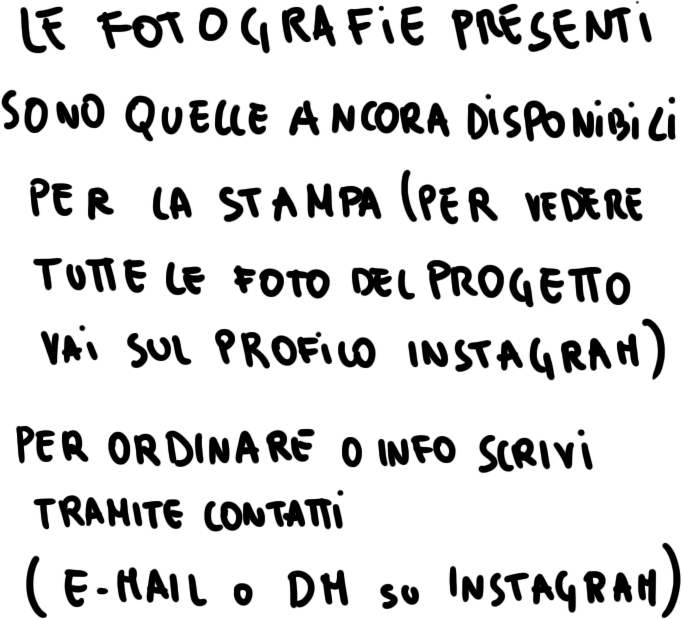 LE FOTOGRAFiE PRESENTi
SONO QUELLE ANCORA DiSPONiBiLi
PER LA STAMPA (PER VEDERE
TUTTE LE FOTO DEL PROGETTO
VAi SUL PROFiLO INSTAGRAM)
PER ORDINARE O INFO SCRIVi
TRAMITE CONTATTi
(E-MAIL o DM su INSTAGRAM)